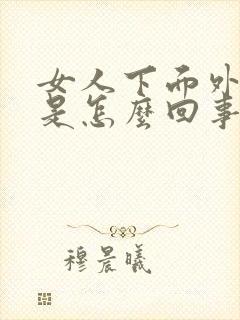 女人下面外
是怎麼回事
穆晨曦